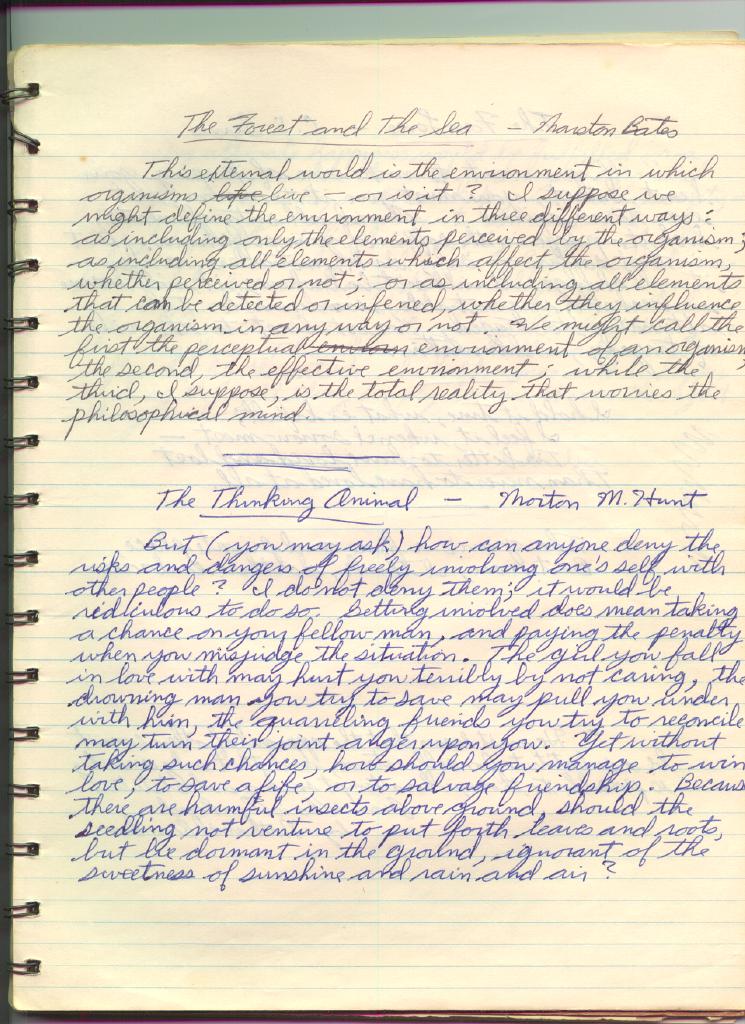 The Forest and The Sea — Marston Bates
This external world is the environment in which
organisms life live — or is it? I suppose we
might define the environment in three different ways:
as including only the elements perceived by the organism;
as including all elements which affect the organism,
whether perceived or not; or as including all elements
that can be detected or inferred, whether they influence
the organism in any way or not. We might call the
first the perceptual environ environment of an organism,
the second, the effective environment; while the
third, I suppose, is the total reality that worries the
philosophical mind
The Thinking Animal — Morton M. Hunt
But (you may ask) how can anyone deny the
risks and dangers of freely involving one's self with
other people? I do not deny them; it would be
rediculous to do so. Getting involved does mean taking
a chance on your fellow man, and paying the penalty
when you misjudge the situation. The girl you fall
in love with may hurt you terribly by not caring, the
drowning man you try to save may pull you under
with him, the quarreling friends you try to reconcile
may turn their joint anger upon you. Yet without
taking such chances, how should you manage to win
love, to save a life, or to salvage friendship. Because
there are harmful insects above ground should the
seedling not venture to put forth leaves and roots,
but lie dormant in the ground, ignorant of the
sweetness of sunshine and rain and air?